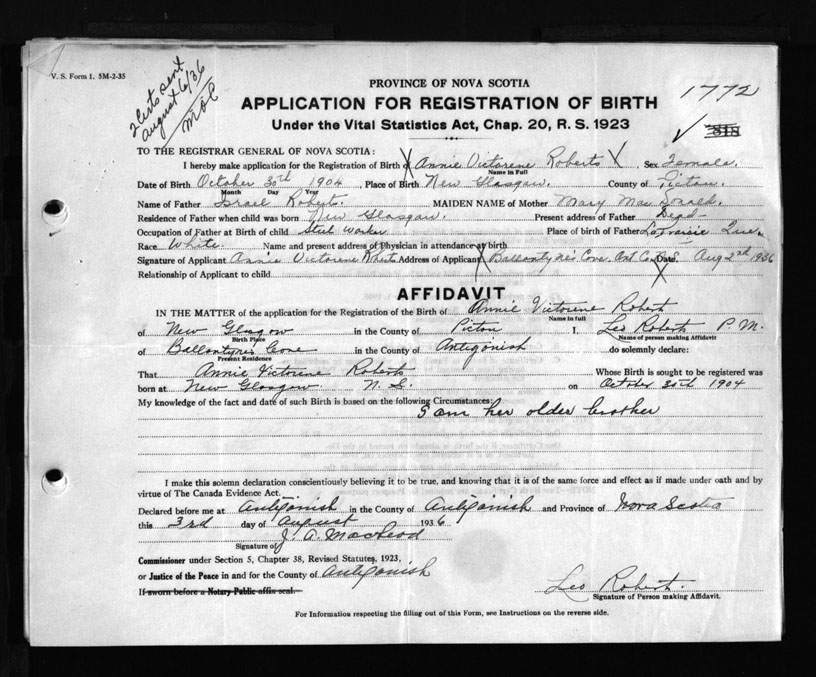 V. S. Form 1. 5M-2-35
2 Certs sent
August 6/36
1772
PROVINCE OF NOVA SCOTIA
APPLICATION FOR REGISTRATION OF BIRTH
Under the Vital Statistics Act, Chap. 20, R. S. 1923
TO THE REGISTRAR GENERAL OF NOVA SCOTIA:
I hereby make application for the Registration of Birth of Annie Victorene Roberts Sex Female.
Name in Full
Date of Birth October 30th 1904, Place of Birth New Glasgow. County of Pictou.
Month Day Year
Name of Father Israel Robert. MAIDEN NAME of Mother Mary Mac Donald.
Residence of Father when child was born New Glasgow. Present address of Father Dead
Occupation of Father at Birth of child Steel Worker Place of birth of Father Que.
Race White. Name and present address of Physician in attendance at birth
Signature of Applicant Annie Victorene Roberts Address of Applicant Ballantyne's Cove. Ant Co. N.S. Date. Aug 2nd 1936
Relationship of Applicant to child
AFFIDAVIT
IN THE MATTER of the application for the Registration of the Birth of Annie Victorene Robert
Name in full
of New Glasgow in the County of Pictou I, Leo Robert P.M.
Birth Place Name of person making Affidavit
of Ballantynes Cove in the County of Antigonish do solemnly declare:
Present Residence
That Annie Victorine Roberts Whose Birth is sought to be registered was
born at New Glasgow N. S. on October 30th 1904
My knowledge of the fact and date of such Birth is based on the following Circumstances:
I am her older brother
I make this solemn declaration conscientiously believing it to be true, and knowing that it is of the same force and effect as if made under oath and by
virtue of The Canada Evidence Act.
Declared before me at Antigonish in the County of Antigonish and Province of Nova Scotia
this 3rd day of August 1936
Signature of J. A. MacLeod
Commissioner under Section 5, Chapter 38, Revised Statutes, 1923,
or Justice of the Peace in and for the County of Antigonish
If sworn before a Notary Public affix seal.
Leo Robert.
Signature of Person making Affidavit.
For Information respecting the filling out of this Form, see Instructions on the reverse side.